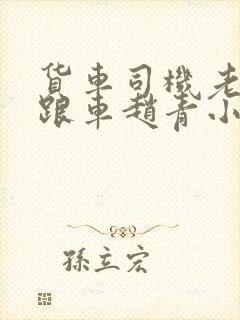 货车司機老
跟車趙青小
孫立宏